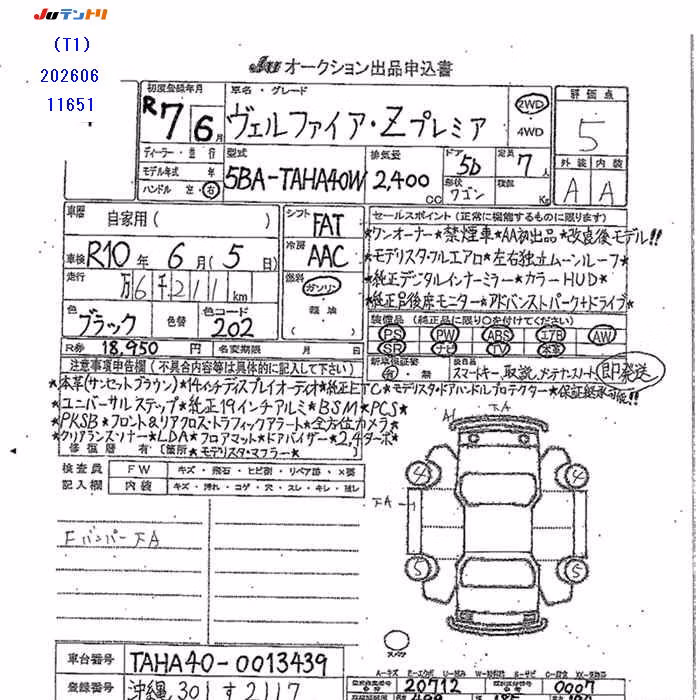 Juテントリ
(T1)
202606
11651
Ju オークション出品申込書
初度登録年月
車名・グレード
評価点
R7 6月
ヴェルファイア・Zプレミア
2WD
4WD
5
ディーラー・並行
モデル年式 年
ハンドル 左・右
型式
5BA-TAHA40W
排気量
2,400 CC
ドア
5D
形状
ワゴン
定員
7人
積載
Kg
外装 内装
A A
車歴
自家用( )
シフト
FAT
セールスポイント(正常に機能するものに限ります)
*ワンオーナー*禁煙車*AA初出品*改良後モデル!!
車検
R10年 6月(5日)
冷房
AAC
*モデリスタ・フルエアロ*左右独立ムーンルーフ*
走行
万6千211km
燃料
ガソリン
軽油
( )
*純正デジタルインナーミラー*カラーHUD*
*純正品後座モニター*アドバンストパーク+ドライブ*
色
ブラック
色替
色コード
202
装備品(純正品に限り○を付けてください)
PS PW ABS エアB AW
SR ナビ TV 本革
R券 18,950円
名変期限 月 日
新車保証書
有・無
後日品
スマートキー、取説、メンテナンスノート
即発送
注意事項申告欄(不具合内容等は具体的に記入して下さい)
*本革(サンセットブラウン)*14インチディスプレイオーディオ*純正ETC*モデリスタ・ドアハンドルプロテクター*保証継承可能!!*
*ユニバーサルステップ*純正19インチアルミ*BSM*PCS*
*PKSB*フロント&リアクロス・トラフィックアラート*全方位カメラ*
*クリアランス・ソナー*LDA*フロアマット*ドアバイザー*2,4ターボ*
修復歴 有 (箇所 *モデリスタ・マフラー*
検査員
記入欄
FW
キズ・飛石・ヒビ割・リペア跡・X要
内装
キズ・汚れ・コゲ・穴・スレ・キレ・ヨレ
A1
下A
4
4
下A
Fバンパー下A
5
5
スペア
車台番号
TAHA40-0013439
登録番号
沖縄 301 す 2117
20712
0007